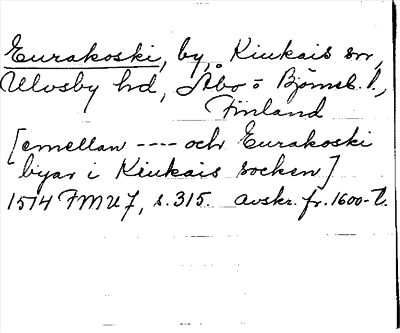 Eurakoski, by, Kiukais sn,
Ulvsby hd, Åbo o Björneb. l.,
Finland
[emellan ---- och Eurakoski
byar i Kiukais socken]
1514 FMU 7, s. 315. avskr. fr. 1600-t.